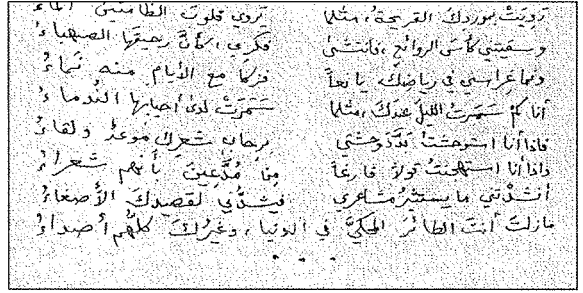 رَوِيَتْ بموردكَ القريحةُ، مثلما تروي قلوبَ الظامئينَ الماءُ
وسقيتني كأسَ الروائعِ، فانتشى فكري، كأنَّ رحيقَها الصهباءُ
ونما غِراسي في رياضِكَ، يانعاً فزكا مع الأيامِ منه نَماءُ
أنا كم سَهرتُ الليلَ عندكَ، مثلما سَمَرَتْ لدى أحبابها النُّدماءُ
فإذا أنا استوحشتُ بَدَّدَ وحشتي برحابِ شعرِكَ موعدٌ ولقاءُ
وإذا أنا استهجنتُ قولاً فارغاً مِن مُدَّعينَ بأنهم شعراءُ
أنشدْتَني ما يستثيرُ مشاعري فيشدُّني لقصيدكَ الإصغاءُ
مازلتَ أنتَ الطائرَ المحكيَّ في الدنيا، وغيرُكَ كلُّهم أصداءُ